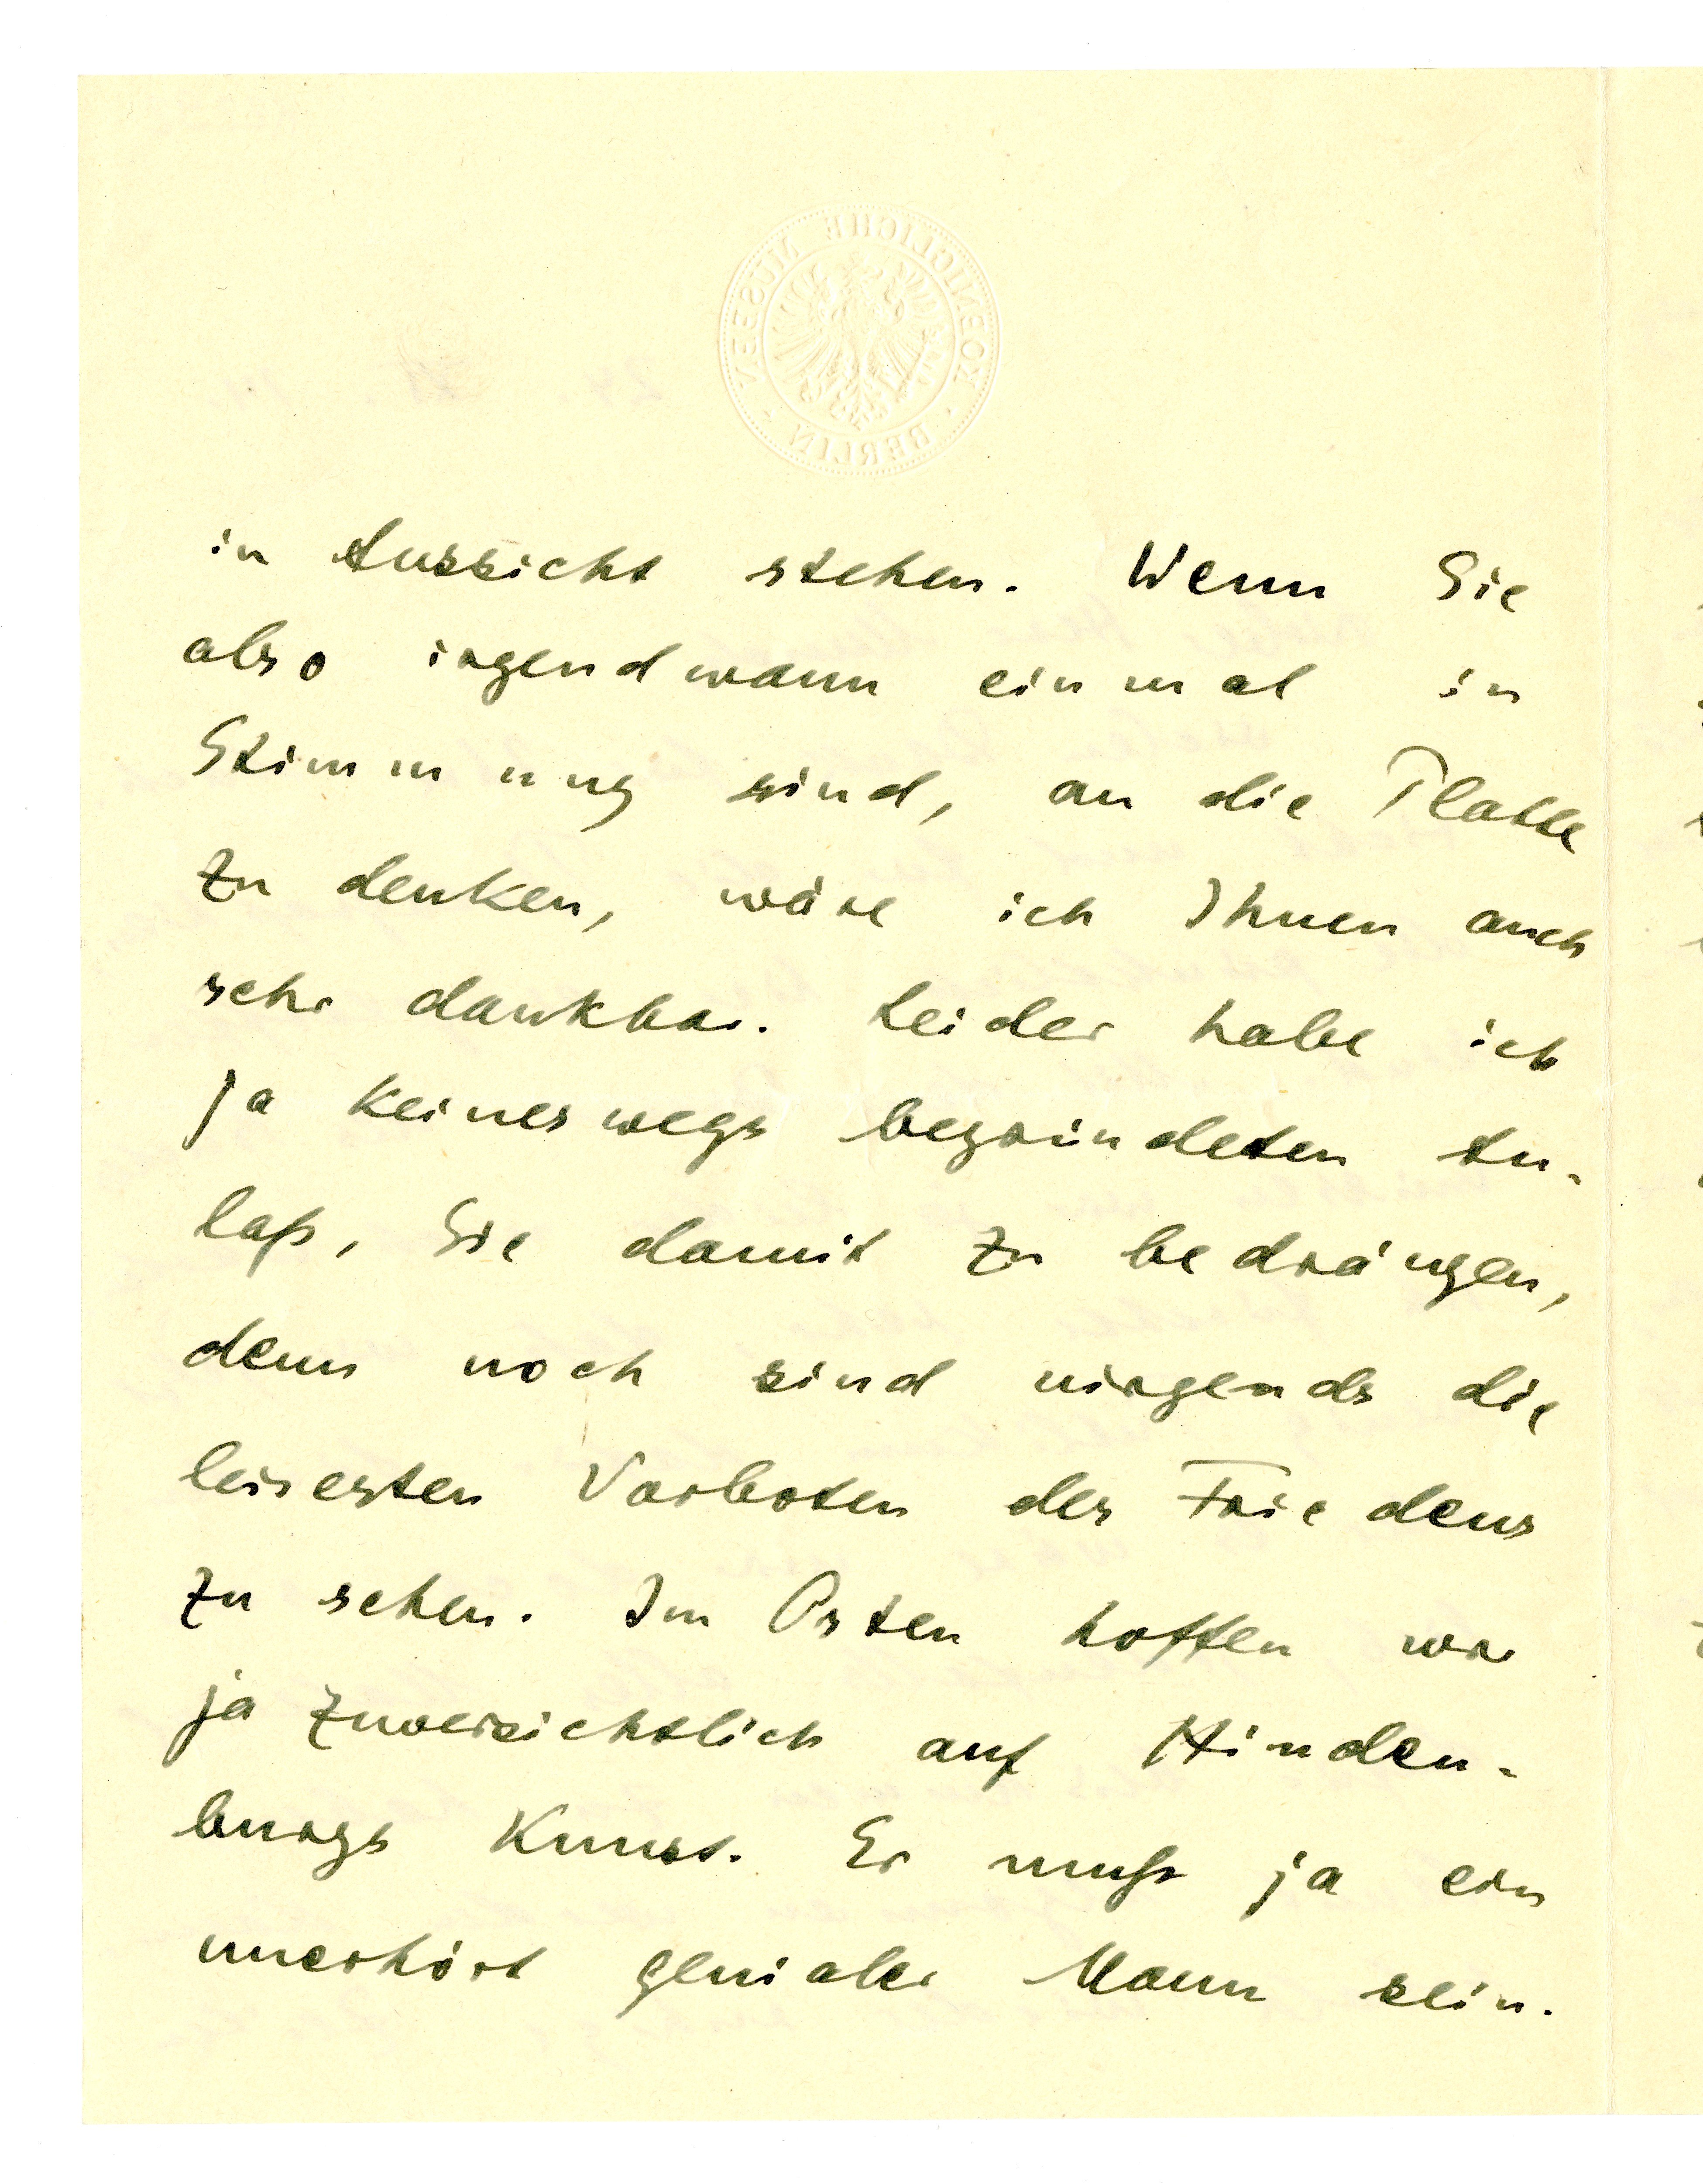 KOENIGLICHE MUSEEN
BERLIN
in Aussicht stehen. Wenn Sie
also irgendwann einmal in
Stimmung sind, an die Platte
zu denken, wäre ich Ihnen auch
sehr dankbar. Leider habe ich
ja keineswegs begründeten An-
laß, Sie damit zu bedrängen,
denn noch sind nirgends die
leisesten Vorboten des Friedens
zu sehen. Im Osten hoffen wir
ja zuversichtlich auf Hinden-
burgs Kunst. Er muß ja ein
unerhört genialer Mann sein.